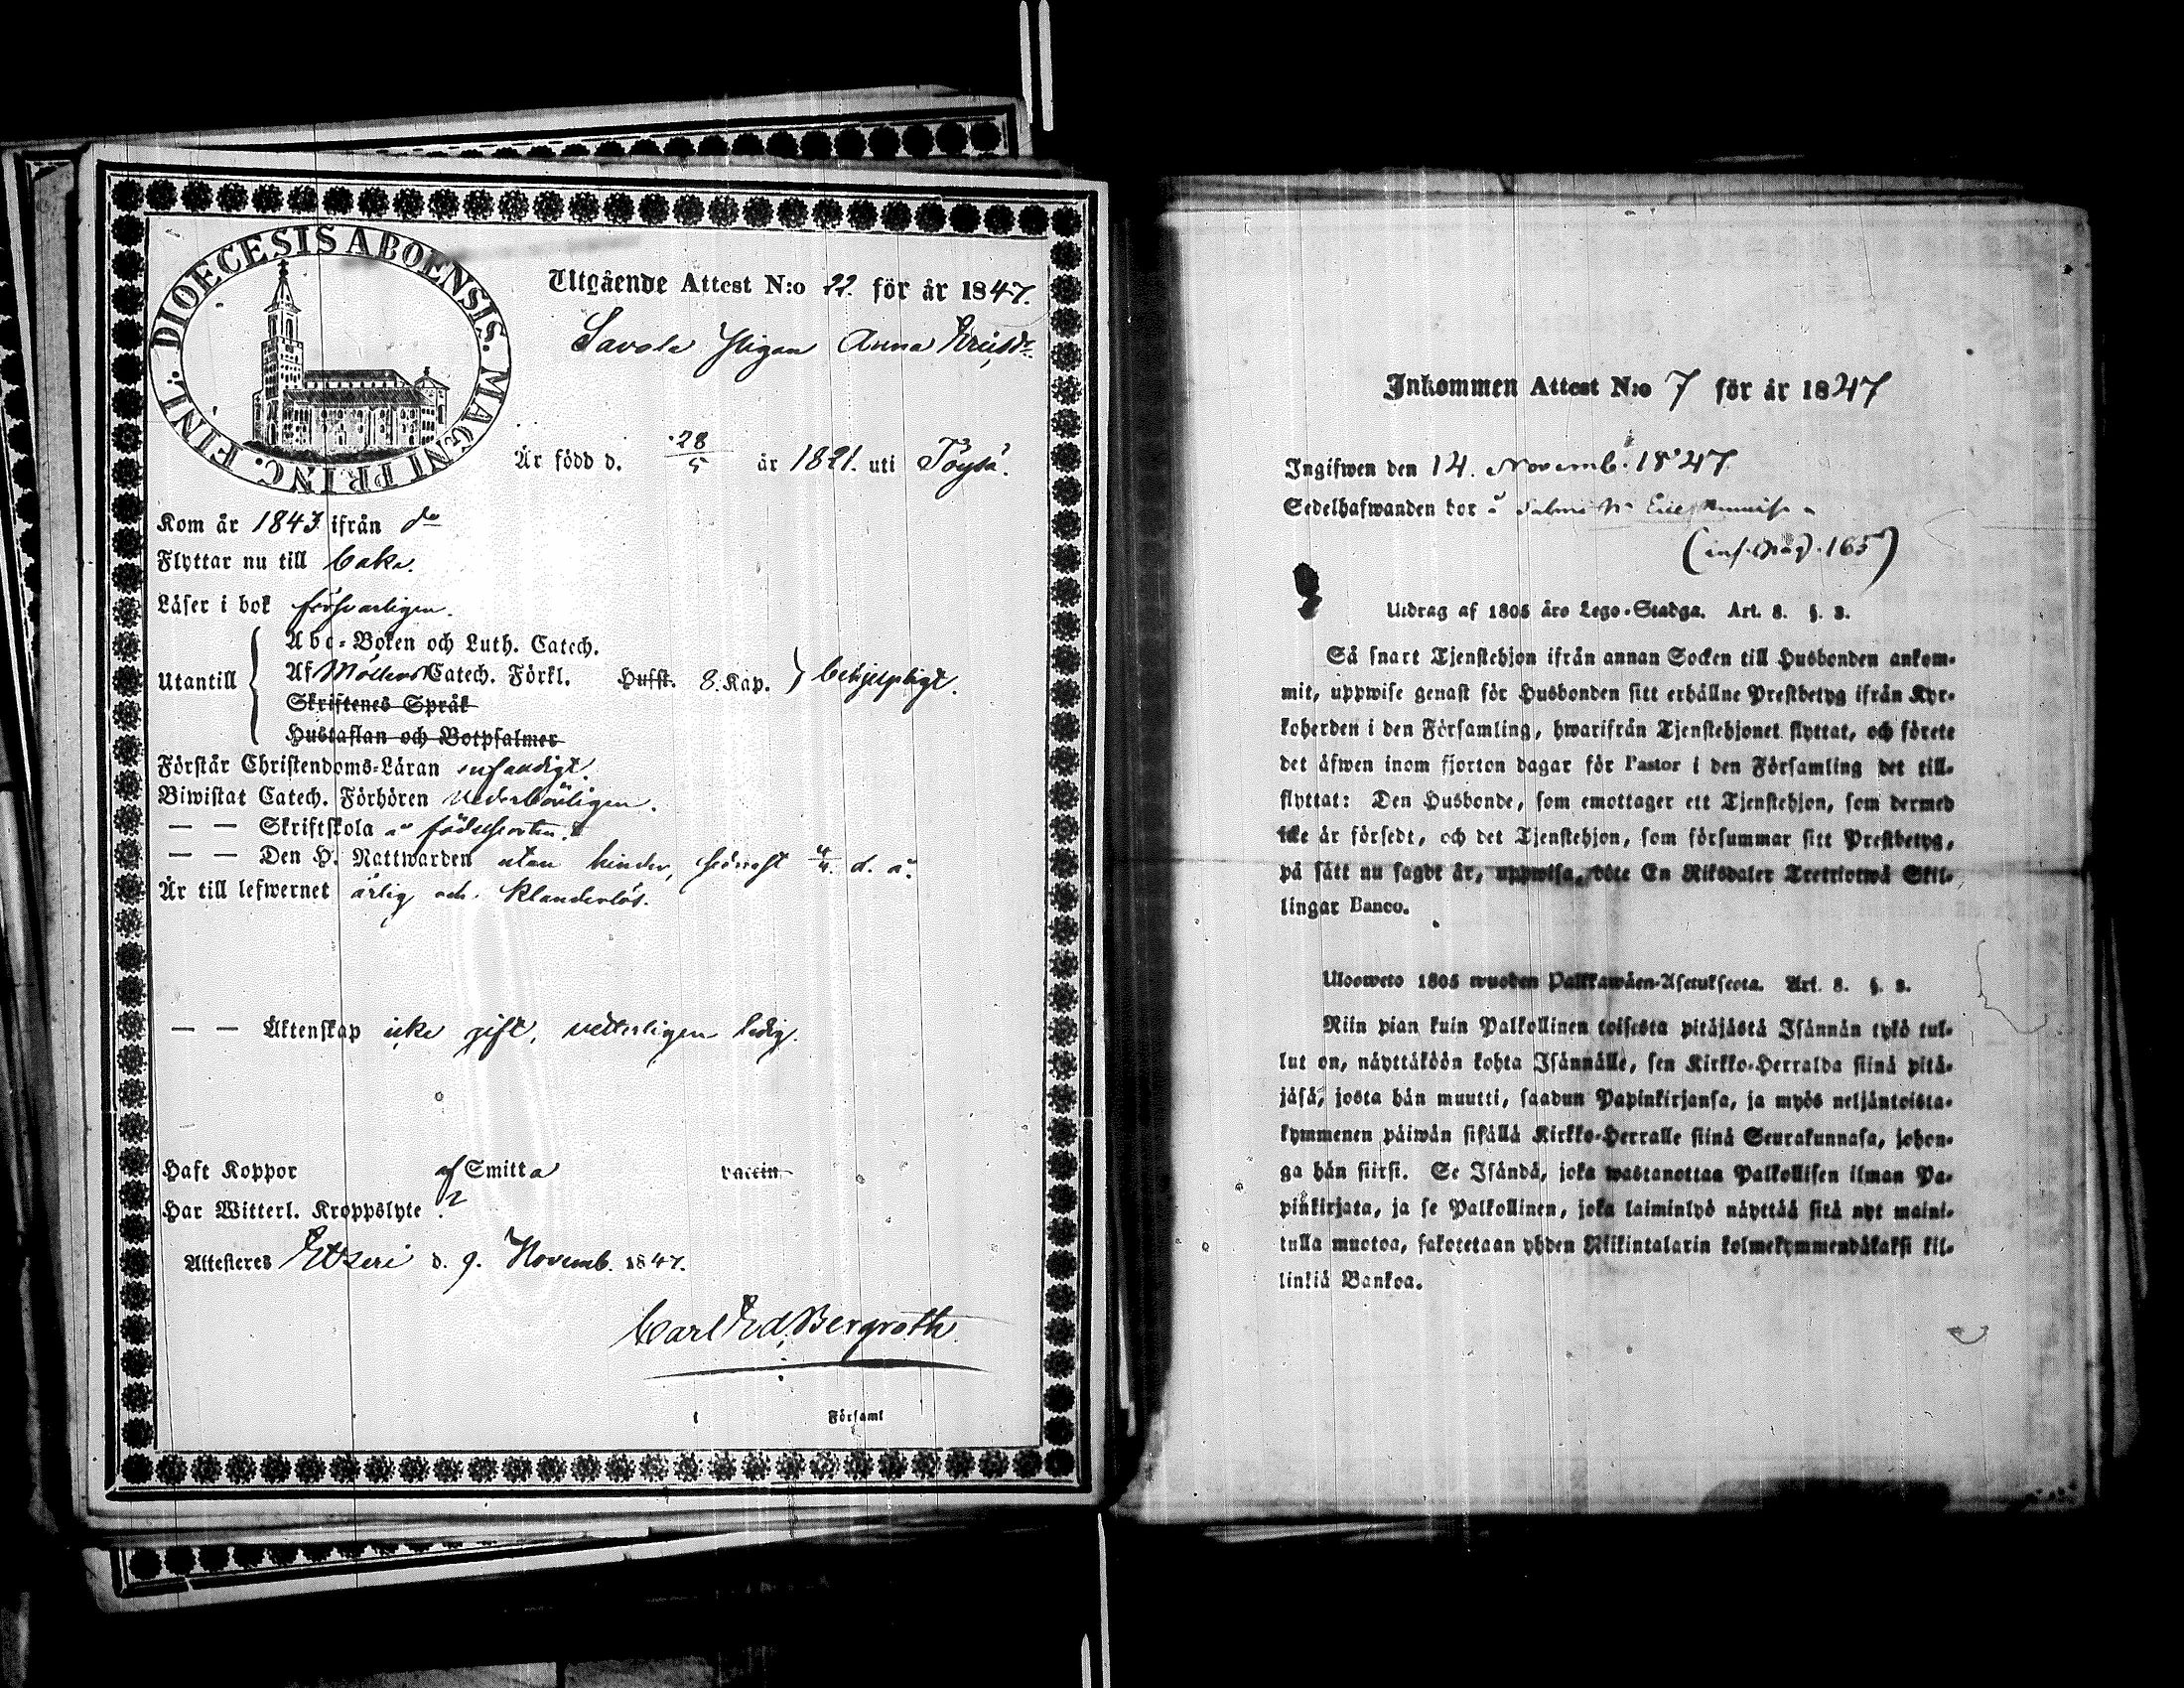 DIOECESIS ABOENSIS. MAGNI PRINC. FINL.
Utgående Attest N:o 22. för år 1847.
Savola Pigan Anna Ericsdr
Är född d. 28/5 år 1821. uti Töysä.
Kom år 1843 ifrån do
Flyttar nu till
Läser i bok försvarligen.
Utantill
Abc-Boken och Luth. Catech.
Af Möllers Catech. Förkl. Hufst. 8. Kap. behjelpligt.
Skriftenes Språk
Hustaflan och Botpsalmer
Förstår Christendoms-Läran enfaldigt.
Biwistat Catech. Förhören vederbörligen.
— — Skriftskola å födelseorten.
— — Den H. Nattwarden utan hinder, senast 4/4. d. å.
Är till lefwernet ärlig och klanderlös.
— — Äktenskap icke gift, vetterligen ledig.
Haft Koppor af Smitta vaccin
Har Witterl. Kroppslyte
Attesteres Etseri d. 9. Novemb. 1847.
Carl Ed. Bergroth.
i Församl
Inkommen Attest N:o 7 för år 1847
Ingifwen den 14. Novemb. 1847
Sedelhafwanden bor å Salmi
165)
Utdrag af 1805 års Lego-Stadga. Art. 8. §. 3.
Så snart Tjenstehjon ifrån annan Socken till Husbonden ankom-
mit, uppwise genast för Husbonden sitt erhållne Prestbetyg ifrån Kyr-
koherden i den Församling, hwarifrån Tjenstehjonet flyttat, och förete
det äfwen inom fjorton dagar för Pastor i den Församling det till-
flyttat: Den Husbonde, som emottager ett Tjenstehjon, som dermed
icke är försedt, och det Tjenstehjon, som försummar sitt Prestbetyg,
på sätt nu sagdt är, uppwisa, böte En Riksdaler Trettiotwå Skil-
lingar Banco.
Ulosweto 1805 wuoden Palkkawäen-Asetuksesta. Art. 8. §. 3.
Niin pian kuin Palkollinen toisesta pitäjästä Isännän tykö tul-
lut on, näyttäköön kohta Isännälle, sen Kirkko-Herralda siinä pitä-
jäsä, josta hän muutti, saadun Papinkirjansa, ja myös neljäntoista-
kymmenen päiwän sisällä Kirkko-Herralle siinä Seurakunnasa, johon-
ga hän siirsi. Se Isändä, joka wastanottaa Palkollisen ilman Pa-
pinkirjata, ja se Palkollinen, joka laiminlyö näyttää sitä nyt maini-
tulla muotoa, sakotetaan yhden Riikintalarin kolmekymmendäkaksi kil-
linkiä Bankoa.